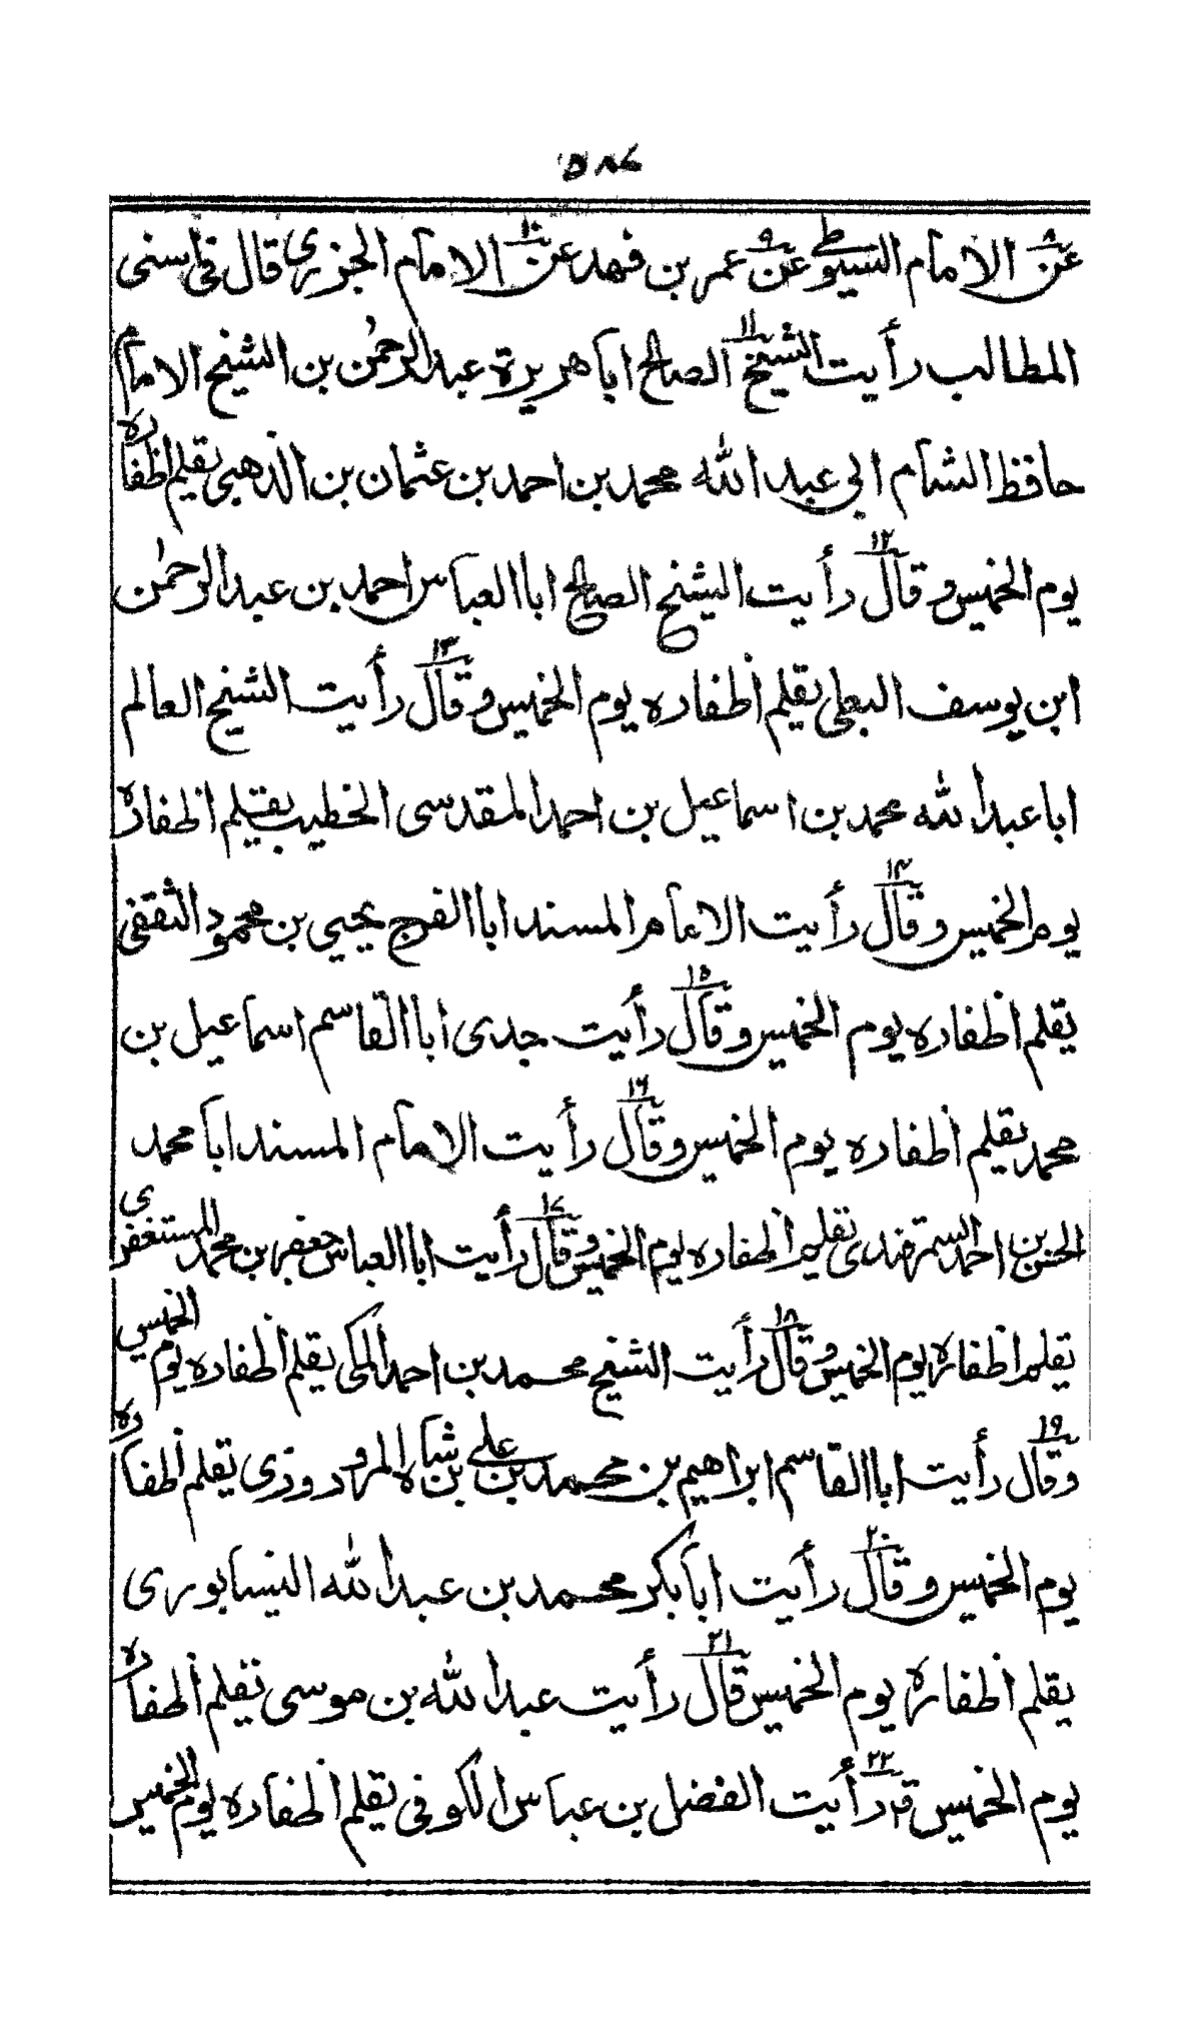 ٥٨٧
عن٨ الامام السيوطي عن٩ عمر بن فهد عن١٠ الامام الجزري قال في اسنى
المطالب رأيت الشيخ١١ الصالح ابا هريرة عبد الرحمٰن بن الشيخ الامام
حافظ الشام ابي عبد الله محمد بن احمد بن عثمان بن الذهبي يقلم اظفاره
يوم الخميس وقال١٢ رأيت الشيخ الصالح ابا العباس احمد بن عبد الرحمٰن
ابن يوسف البعلي يقلم أظفاره يوم الخميس وقال١٣ رأيت الشيخ العالم
ابا عبد الله محمد بن اسماعيل بن احمد المقدسي الخطيب يقلم اظفاره
يوم الخميس وقال١٤ رأيت الامام المسند ابا الفرج يحيي بن محمود الثقفي
يقلم اظفاره يوم الخميس وقال١٥ رأيت جدى ابا القاسم اسماعيل بن
محمد يقلم أظفاره يوم الخميس وقال١٦ رأيت الامام المسند ابا محمد
الحسن بن احمد السمرقندى يقلم اظفاره يوم الخميس وقال١٧ رأيت ابا العباس جعفر بن محمد المستغفري
يقلم اظفاره يوم الخميس وقال١٨ رأيت الشيخ محمد بن احمد المكي يقلم اظفاره يوم الخميس
وقال١٩ رأيت ابا القاسم ابراهيم بن محمد بن علي بن شاه المرودروذى يقلم اظفاره
يوم الخميس وقال٢٠ رأيت ابا بكر محمد بن عبد الله النيسابورى
يقلم اظفاره يوم الخميس قال٢١ رأيت عبد الله بن موسى يقلم اظفاره
يوم الخميس ق٢٢ رأيت الفضل بن عباس الكوفى يقلم اظفاره يوم الخميس